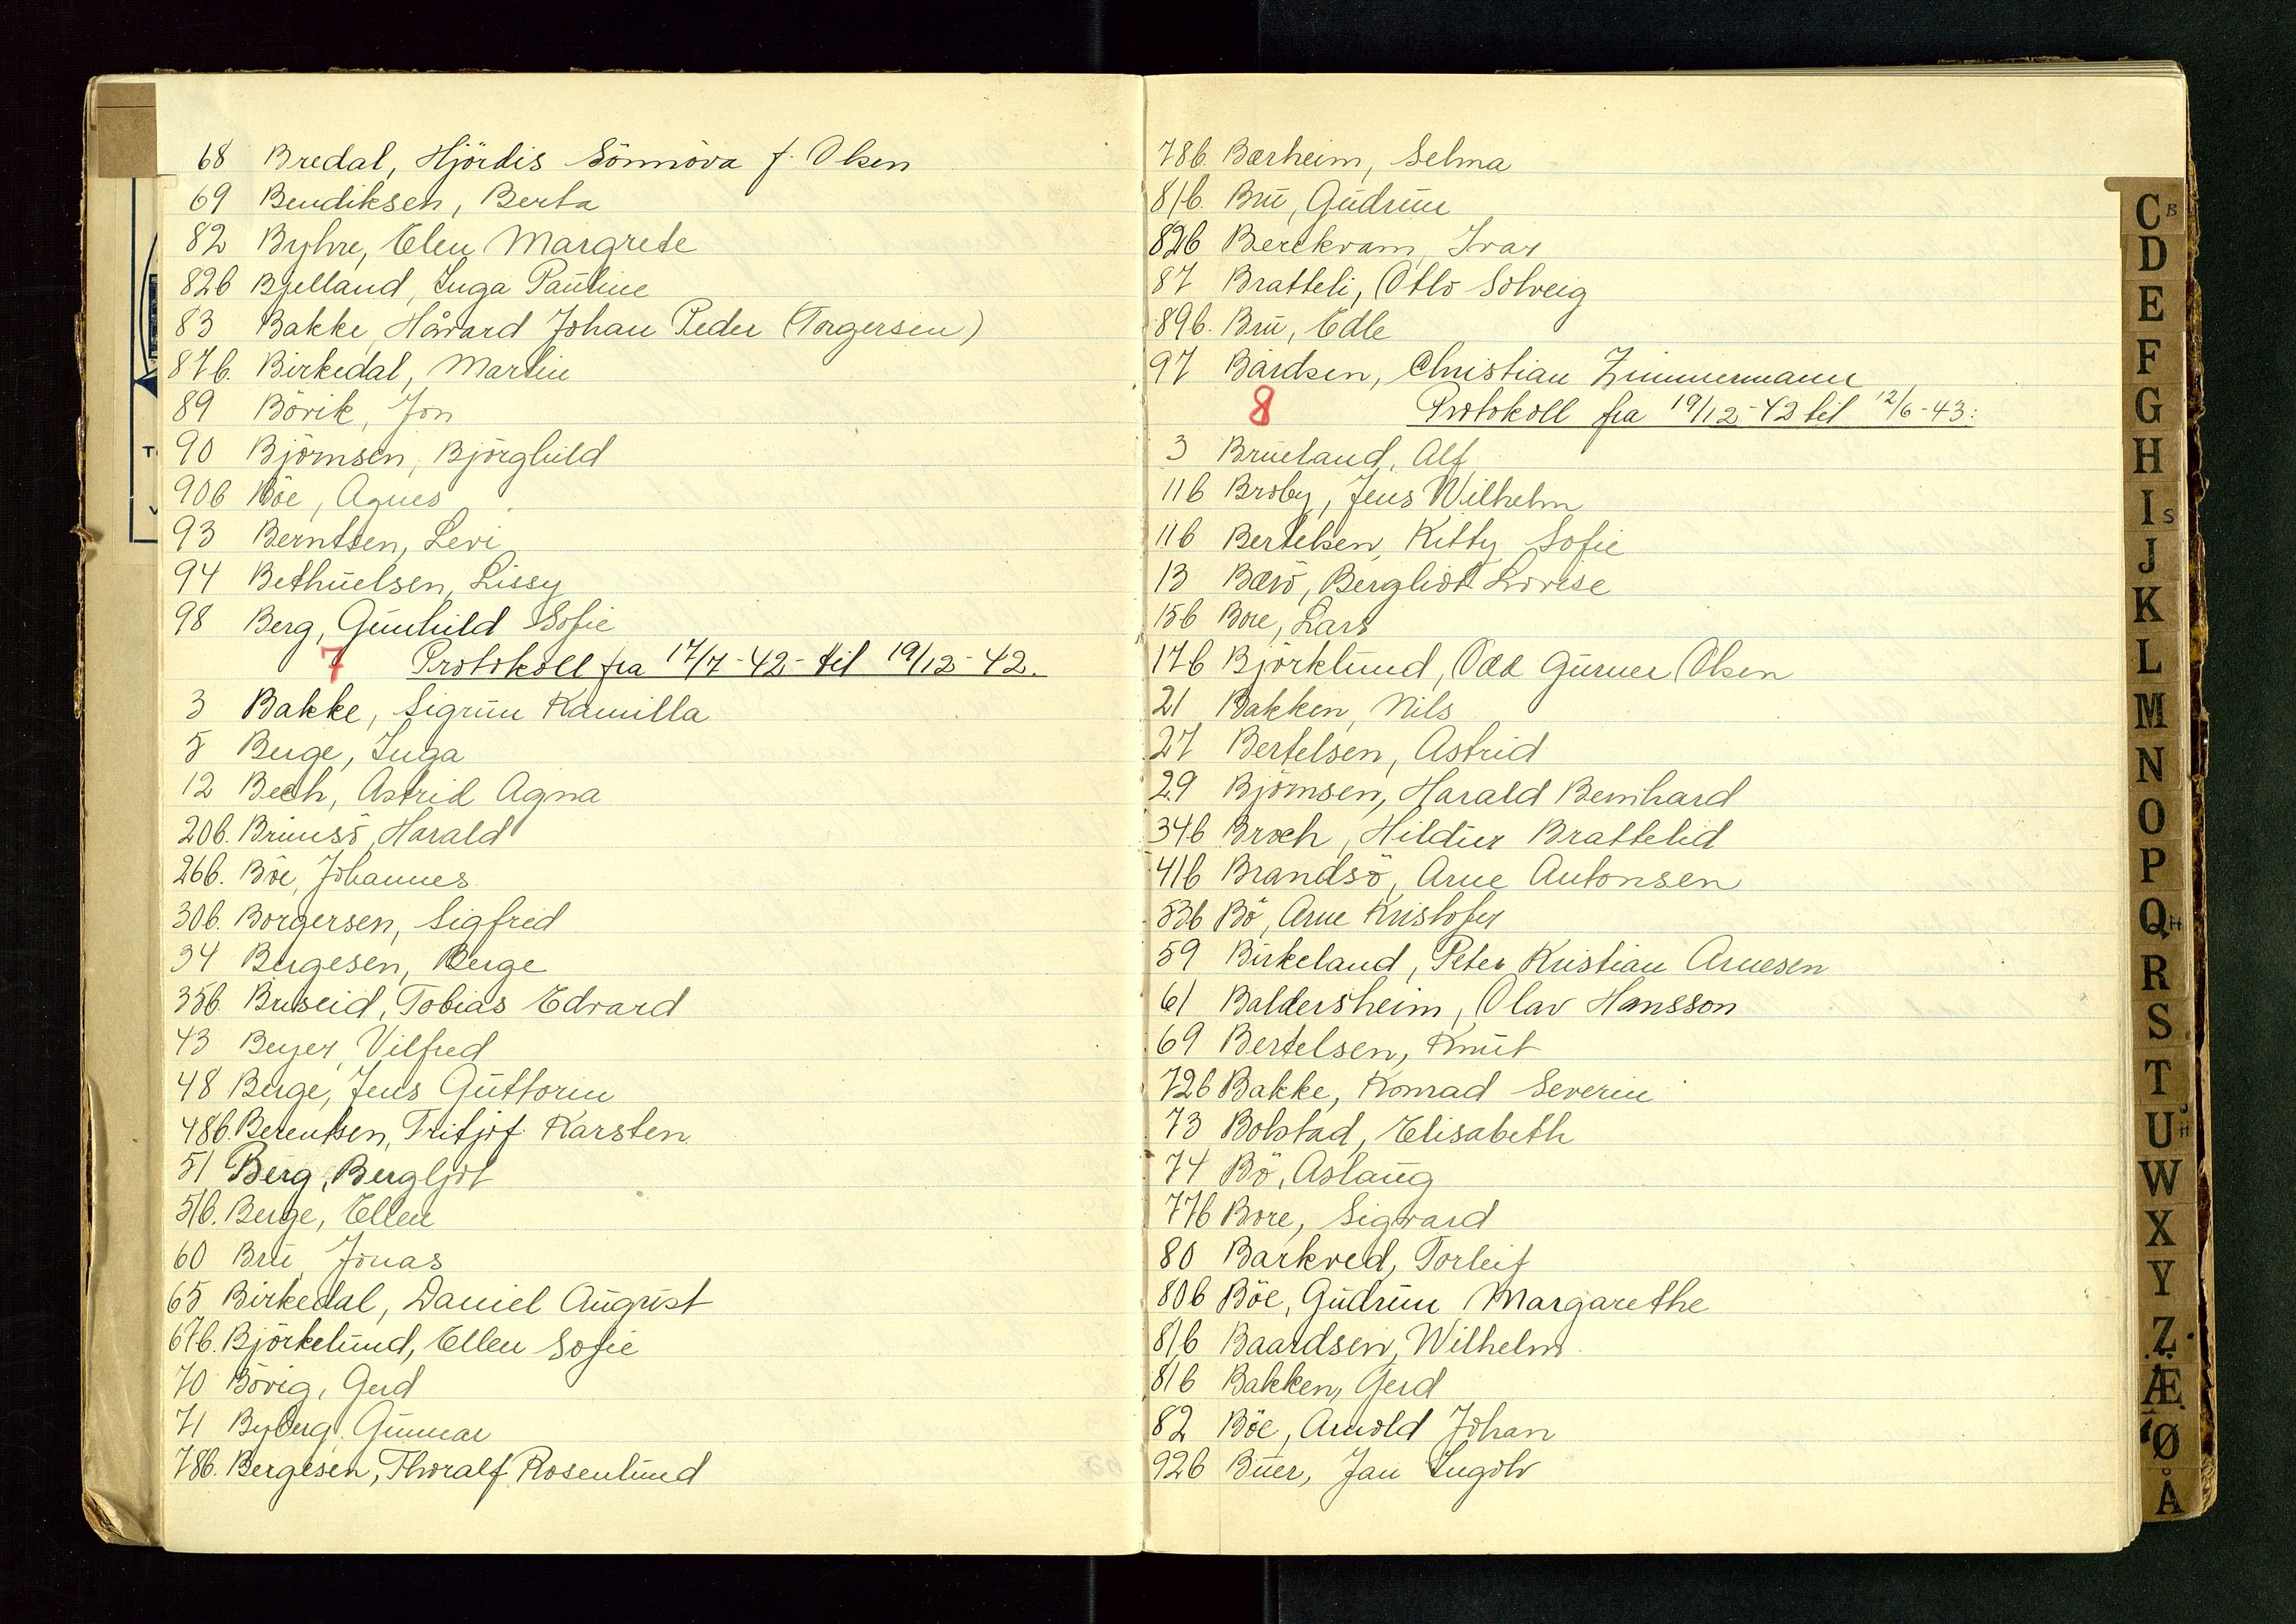 68 Bredal, Hjördis Sönnöva f. Olsen
69 Bendiksen, Berta
82 Byhre, Elen Margrete
82b Bjelland, Inga Pauline
83 Bakke, Håvard Johan Peder (Torgersen)
87b. Birkedal, Martin
89 Børik, Jon
90 Björnsen, Björghild
90b Böe, Agnes
93 Berntsen, Levi
94 Bethuelsen, Lissy
98 Berg, Gunhild Sofie
7 Protokoll fra 17/7-42- til 19/12-42.
3 Bakke, Sigrun Kamilla
5 Berge, Inga
12 Bech, Astrid Agna
20b. Brimsö, Harald
26b. Böe, Johannes
30b. Borgersen, Sigfred
34 Bergesen, Berge
35b. Buseid, Tobias Edvard
43 Beyer, Vilfred
48 Berge, Jens Guttorm
48b. Berentsen, Fritjof Karsten
51 Berg, Bergljot
51b. Berge, Ellen
60 Bru, Jonas
65 Birkedal, Daniel August
67b. Björkelund, Ellen Sofie
70 Bövig, Gerd
71 Byberg, Gunnar
78b. Bergesen, Thoralf Rosenlund
78b. Bærheim, Selma
81b. Bru, Gudrun
82b Berekvam, Ivar
87 Bratteli, Otto Solveig
89b. Bru, Edle
97 Bårdsen, Christian Zimmermann
8 Protokoll fra 19/12-42 til 12/6-43:
3 Brueland, Alf
11b Broby, Jens Wilhelm
11b Bertelsen, Kitty Sofie
13 Bærö, Bergliot Lovise
15b Bore, Lars
17b Björklund, Odd Gurner Olsen
21 Bakken, Nils
27 Bertelsen, Astrid
29 Björnsen, Harald Bernhard
34b Broch, Hildur Brattelid
41b Brandsö, Arne Antonsen
53b Bö, Arne Kristofer
59 Birkeland, Peter Kristian Arnesen
61 Baldersheim, Olav Hansson
69 Bertelsen, Knut
72b Bakke, Konrad Severin
73 Bolstad, Elisabeth
74 Bö, Aslaug
77b Bore, Sigvard
80 Barkved, Torleif
80b Böe, Gudrun Margarethe
81b Baardsen, Wilhelm
81b Bakken, Gerd
82 Böe, Arnold Johan
92b Buer, Jan Ingolv
C B
D
E
F
G
H
I S
J
K
L
M
N
O
P
Q H
R
S
T
U
W
X
Y
Z
Æ
Ø
Å